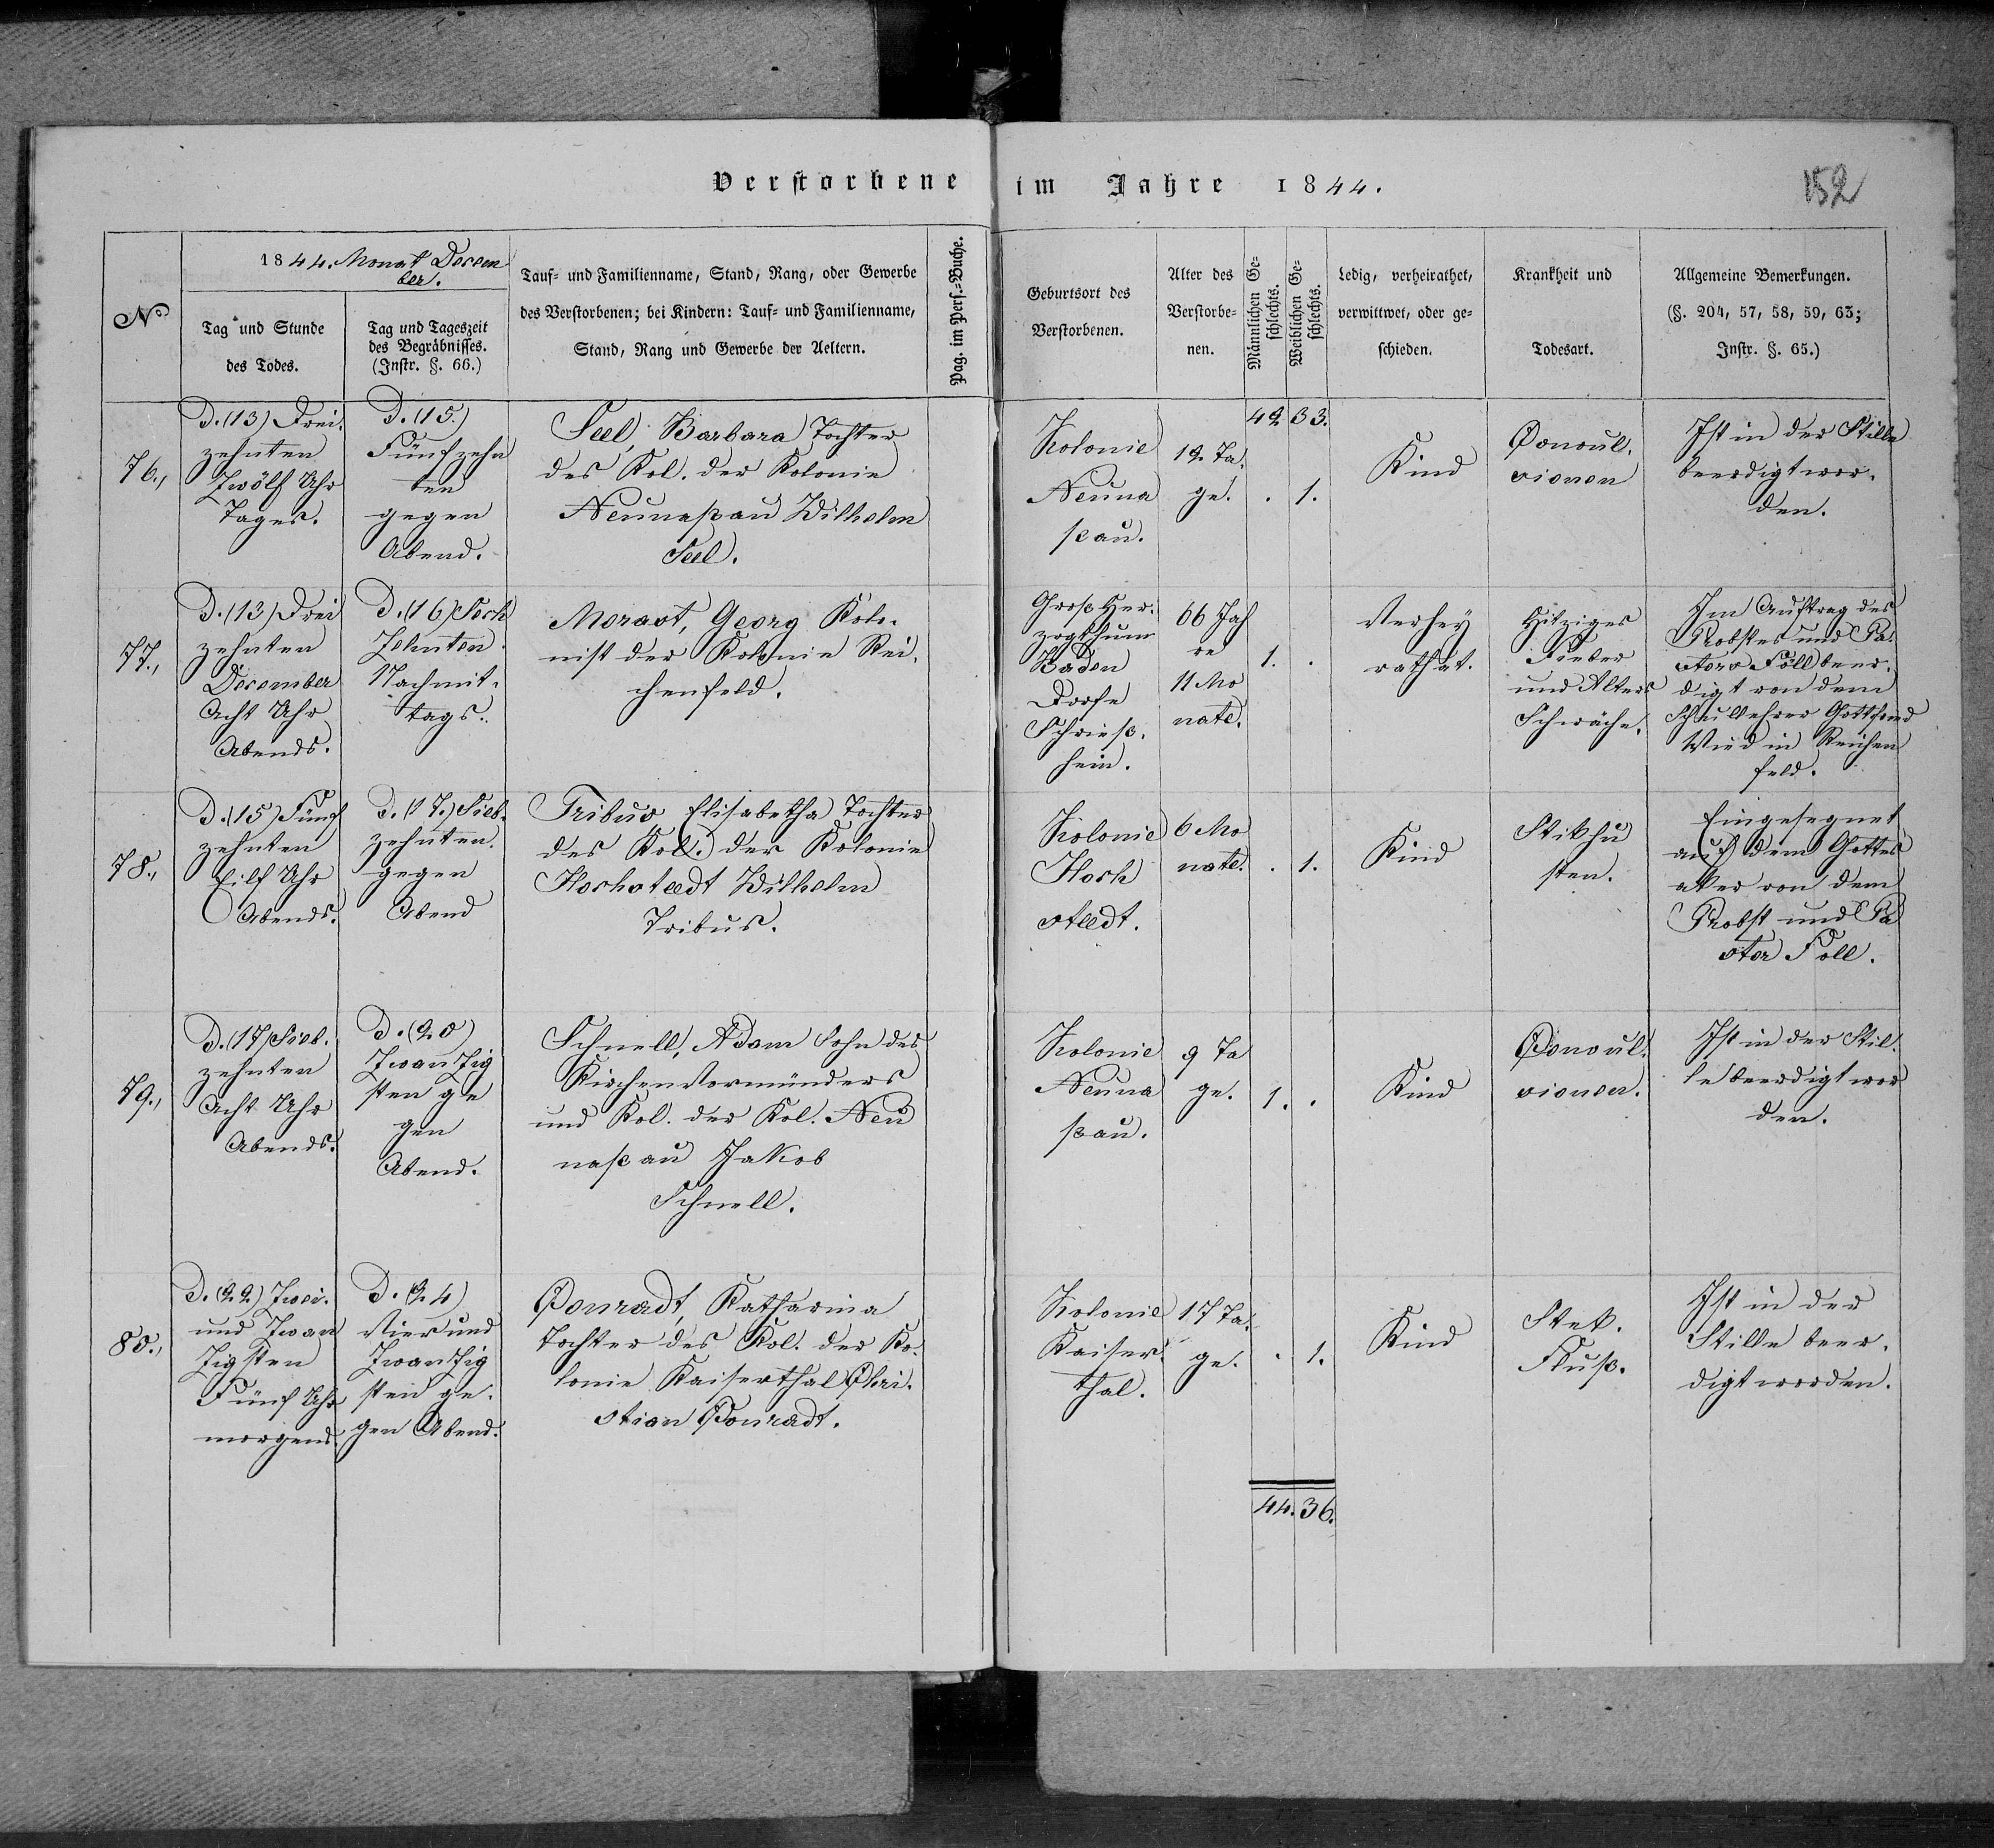 Verstorbene im Jahre 1844.
152
No
1844. Monat Decem
ber.
Tag und Stunde
des Todes.
Tag und Tageszeit
des Begräbnisses.
(Instr. §. 66.)
Tauf- und Familienname, Stand, Rang, oder Gewerbe
des Verstorbenen; bei Kindern: Tauf- und Familienname,
Stand, Rang und Gewerbe der Aeltern.
Pag. im Pers.-Buche.
Geburtsort des
Verstorbenen.
Alter des
Verstorbe-
nen.
Männlichen Ge-
schlechts.
Weiblichen Ge-
schlechts.
Ledig, verheirathet,
verwittwet, oder ge-
schieden.
Krankheit und
Todesart.
Allgemeine Bemerkungen.
(§. 204, 57, 58, 59, 63;
Instr. §. 65.)
42 33.
76.,
D. (13) Drei-
zehnten
Zwölf Uhr
Tages.
D. (15.)
Fünfzehn
ten
gegen
Abend.
Seel, Barbara Tochter
des Kol. der Kolonie
Neunaßau Wilhelm
Seel.
Kolonie
Neuna
ßau.
12 Ta-
ge.
. 1.
Kind
Convul-
sionen
Ist in der Stille
beerdigt wor-
den.
77.,
D. (13) Drei
zehnten
December
Acht Uhr
Abends.
D. (16) Sech
zehnten
Nachmit-
tags.
Georg Kolo-
nist der Kolonie Rei-
chenfeld.
GroßHer-
zogthum
Baden
Dorfe
Schrieß-
heim.
66 Jah
re
11 Mo
nate.
1. .
Verhey
rathat.
Hitziges
Fieber
und Alters
Schwäche.
Im Auftrag des
Probstes und Pa-
stors Föll beer-
digt von dem
Schullehrer Gottfried
Wied in Reichen
feld.
78.,
D. (15) Fünf
zehnten
Eilf Uhr
Abends.
D. (17.) Sieb-
zehnten
gegen
Abend
Tribus Elisabetha Tochter
des Kol. der Kolonie
Hochstedt Wilhelm
Tribus.
Kolonie
Hoch
stedt.
6 Mo
nate.
. 1.
Kind
Stikhu
sten.
Eingesegnet
auf dem Gottes
aker von dem
Probst und Pa
stor Föll.
79.,
D. (17) Sieb-
zehnten
Acht Uhr
Abends.
D. (20)
Zwanzig
sten ge
gen
Abend.
Schnell, Adam Sohn des
Kirchenvormünders
und Kol. der Kol. Neu
naßau Jakob
Schnell.
Kolonie
Neuna
ßau.
9 Ta
ge.
1. .
Kind
Convul-
sionen.
Ist in der Stil-
le beerdigt wor
den.
80.,
D. (22) Zwei-
und Zwan
zigsten
Fünf Uhr
morgens.
D. (24)
Vier und
Zwanzig
sten ge-
gen Abend.
Conradt, Katharina
Tochter des Kol. der Ko-
lonie Kaiserthal Chri-
stian Conradt.
Kolonie
Kaiser-
thal.
17 Ta-
ge.
. 1.
Kind
Stek-
Fluß.
Ist in der
Stille beer-
digt worden.
44. 36.